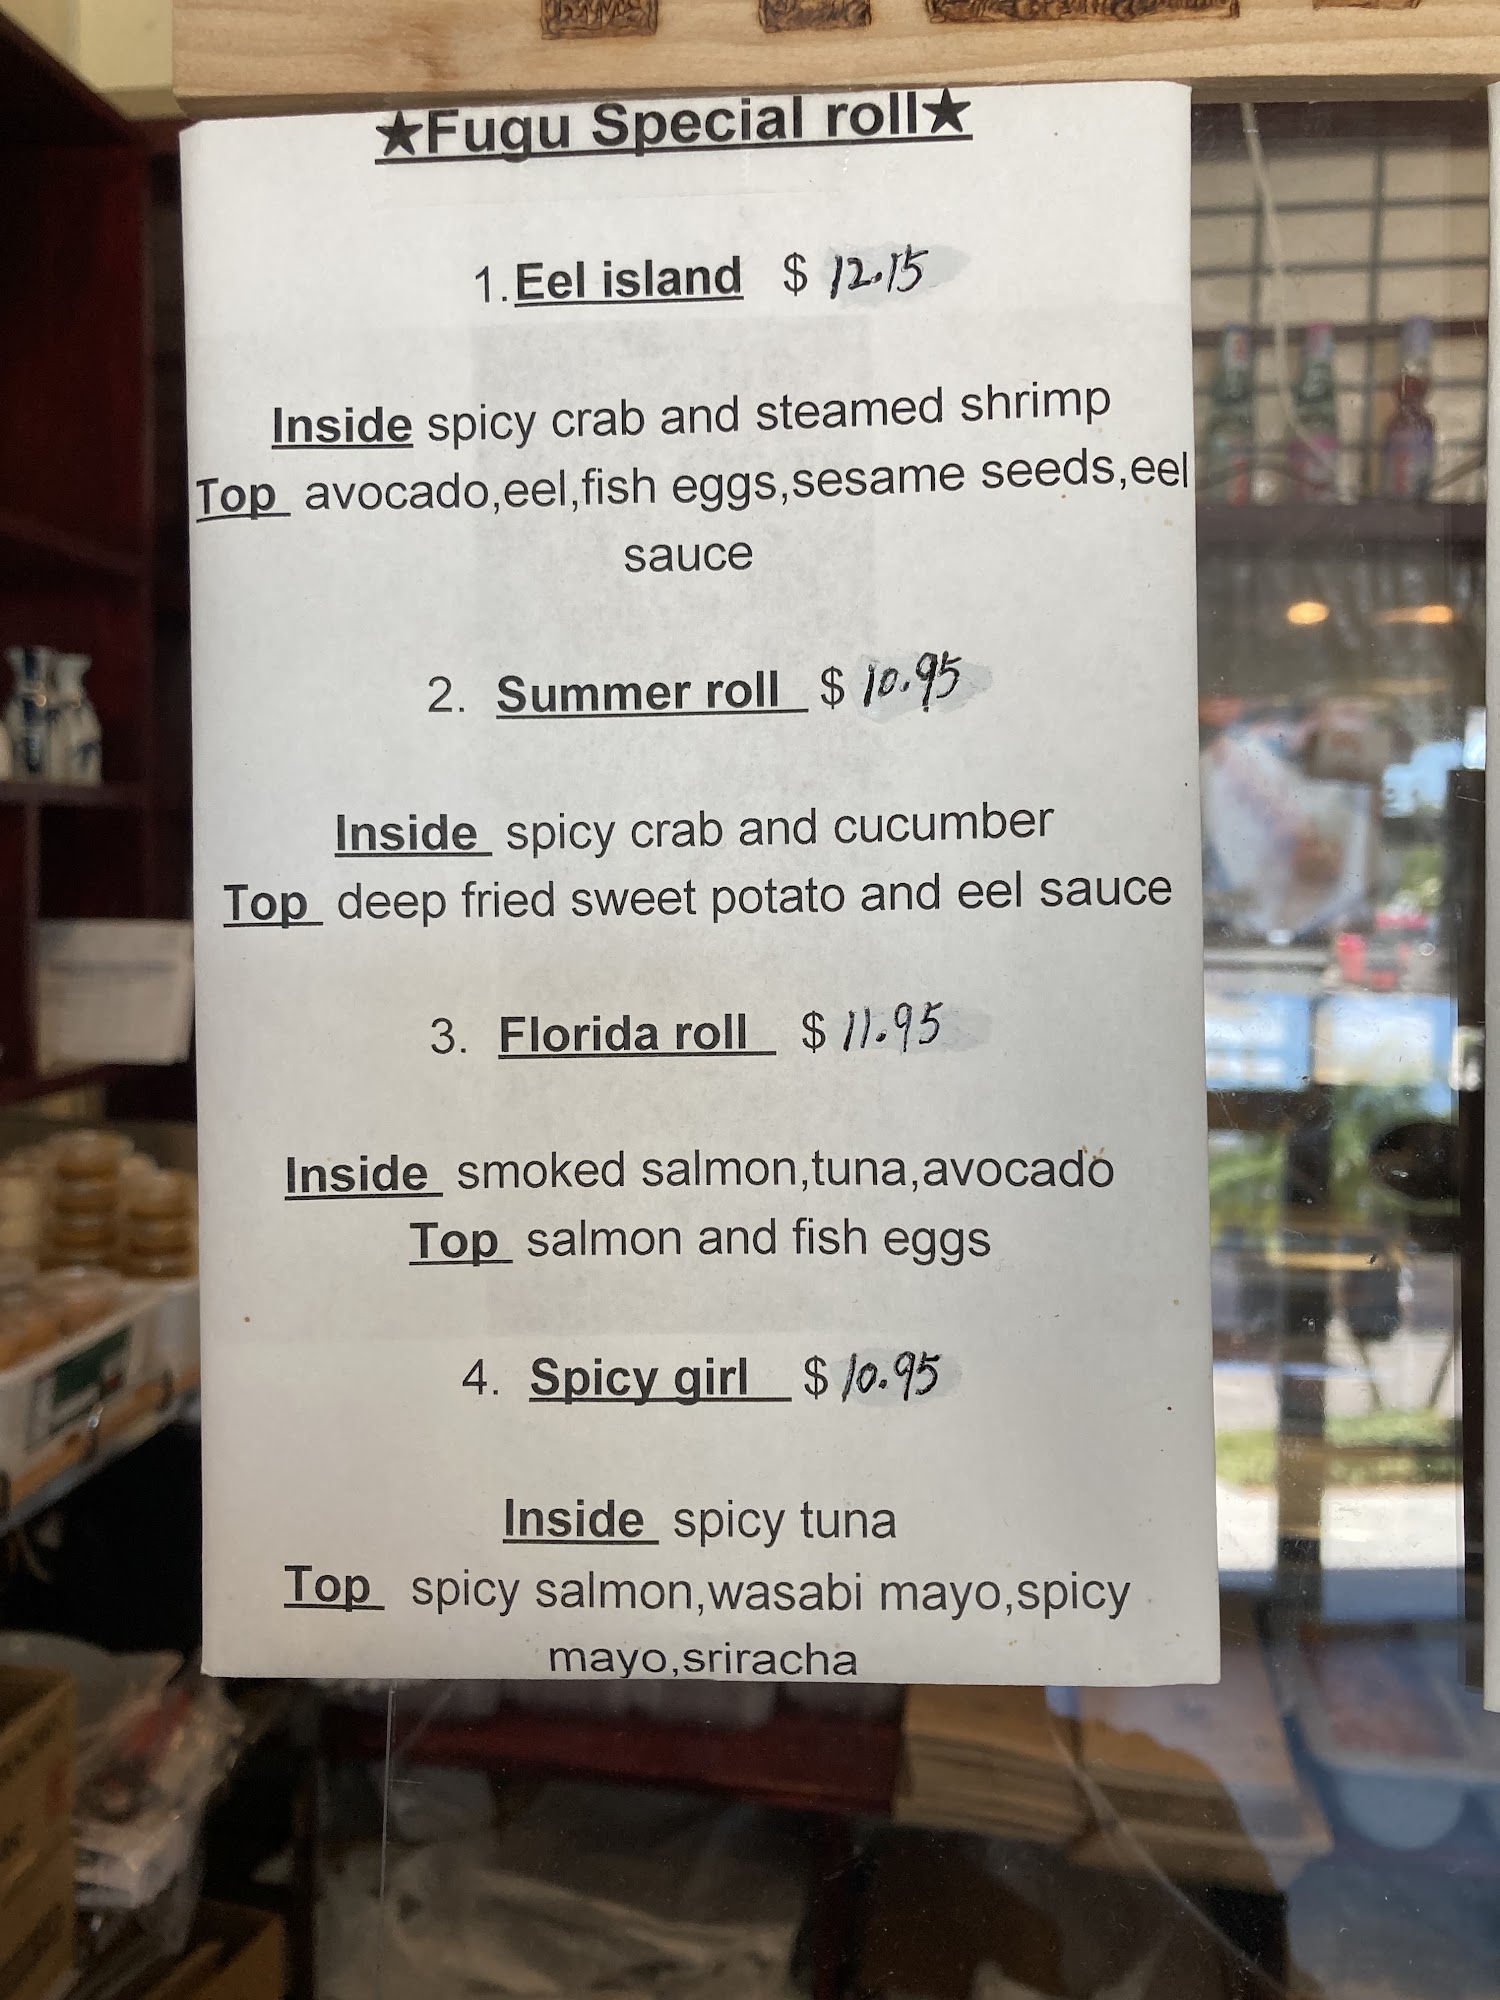 ★Fugu Special roll★
1. Eel island $ 12.15
Inside spicy crab and steamed shrimp
Top avocado,eel,fish eggs,sesame seeds,eel
sauce
2. Summer roll $ 10.95
Inside spicy crab and cucumber
Top deep fried sweet potato and eel sauce
3. Florida roll $ 11.95
Inside smoked salmon,tuna,avocado
Top salmon and fish eggs
4. Spicy girl $ 10.95
Inside spicy tuna
Top spicy salmon,wasabi mayo,spicy
mayo,sriracha